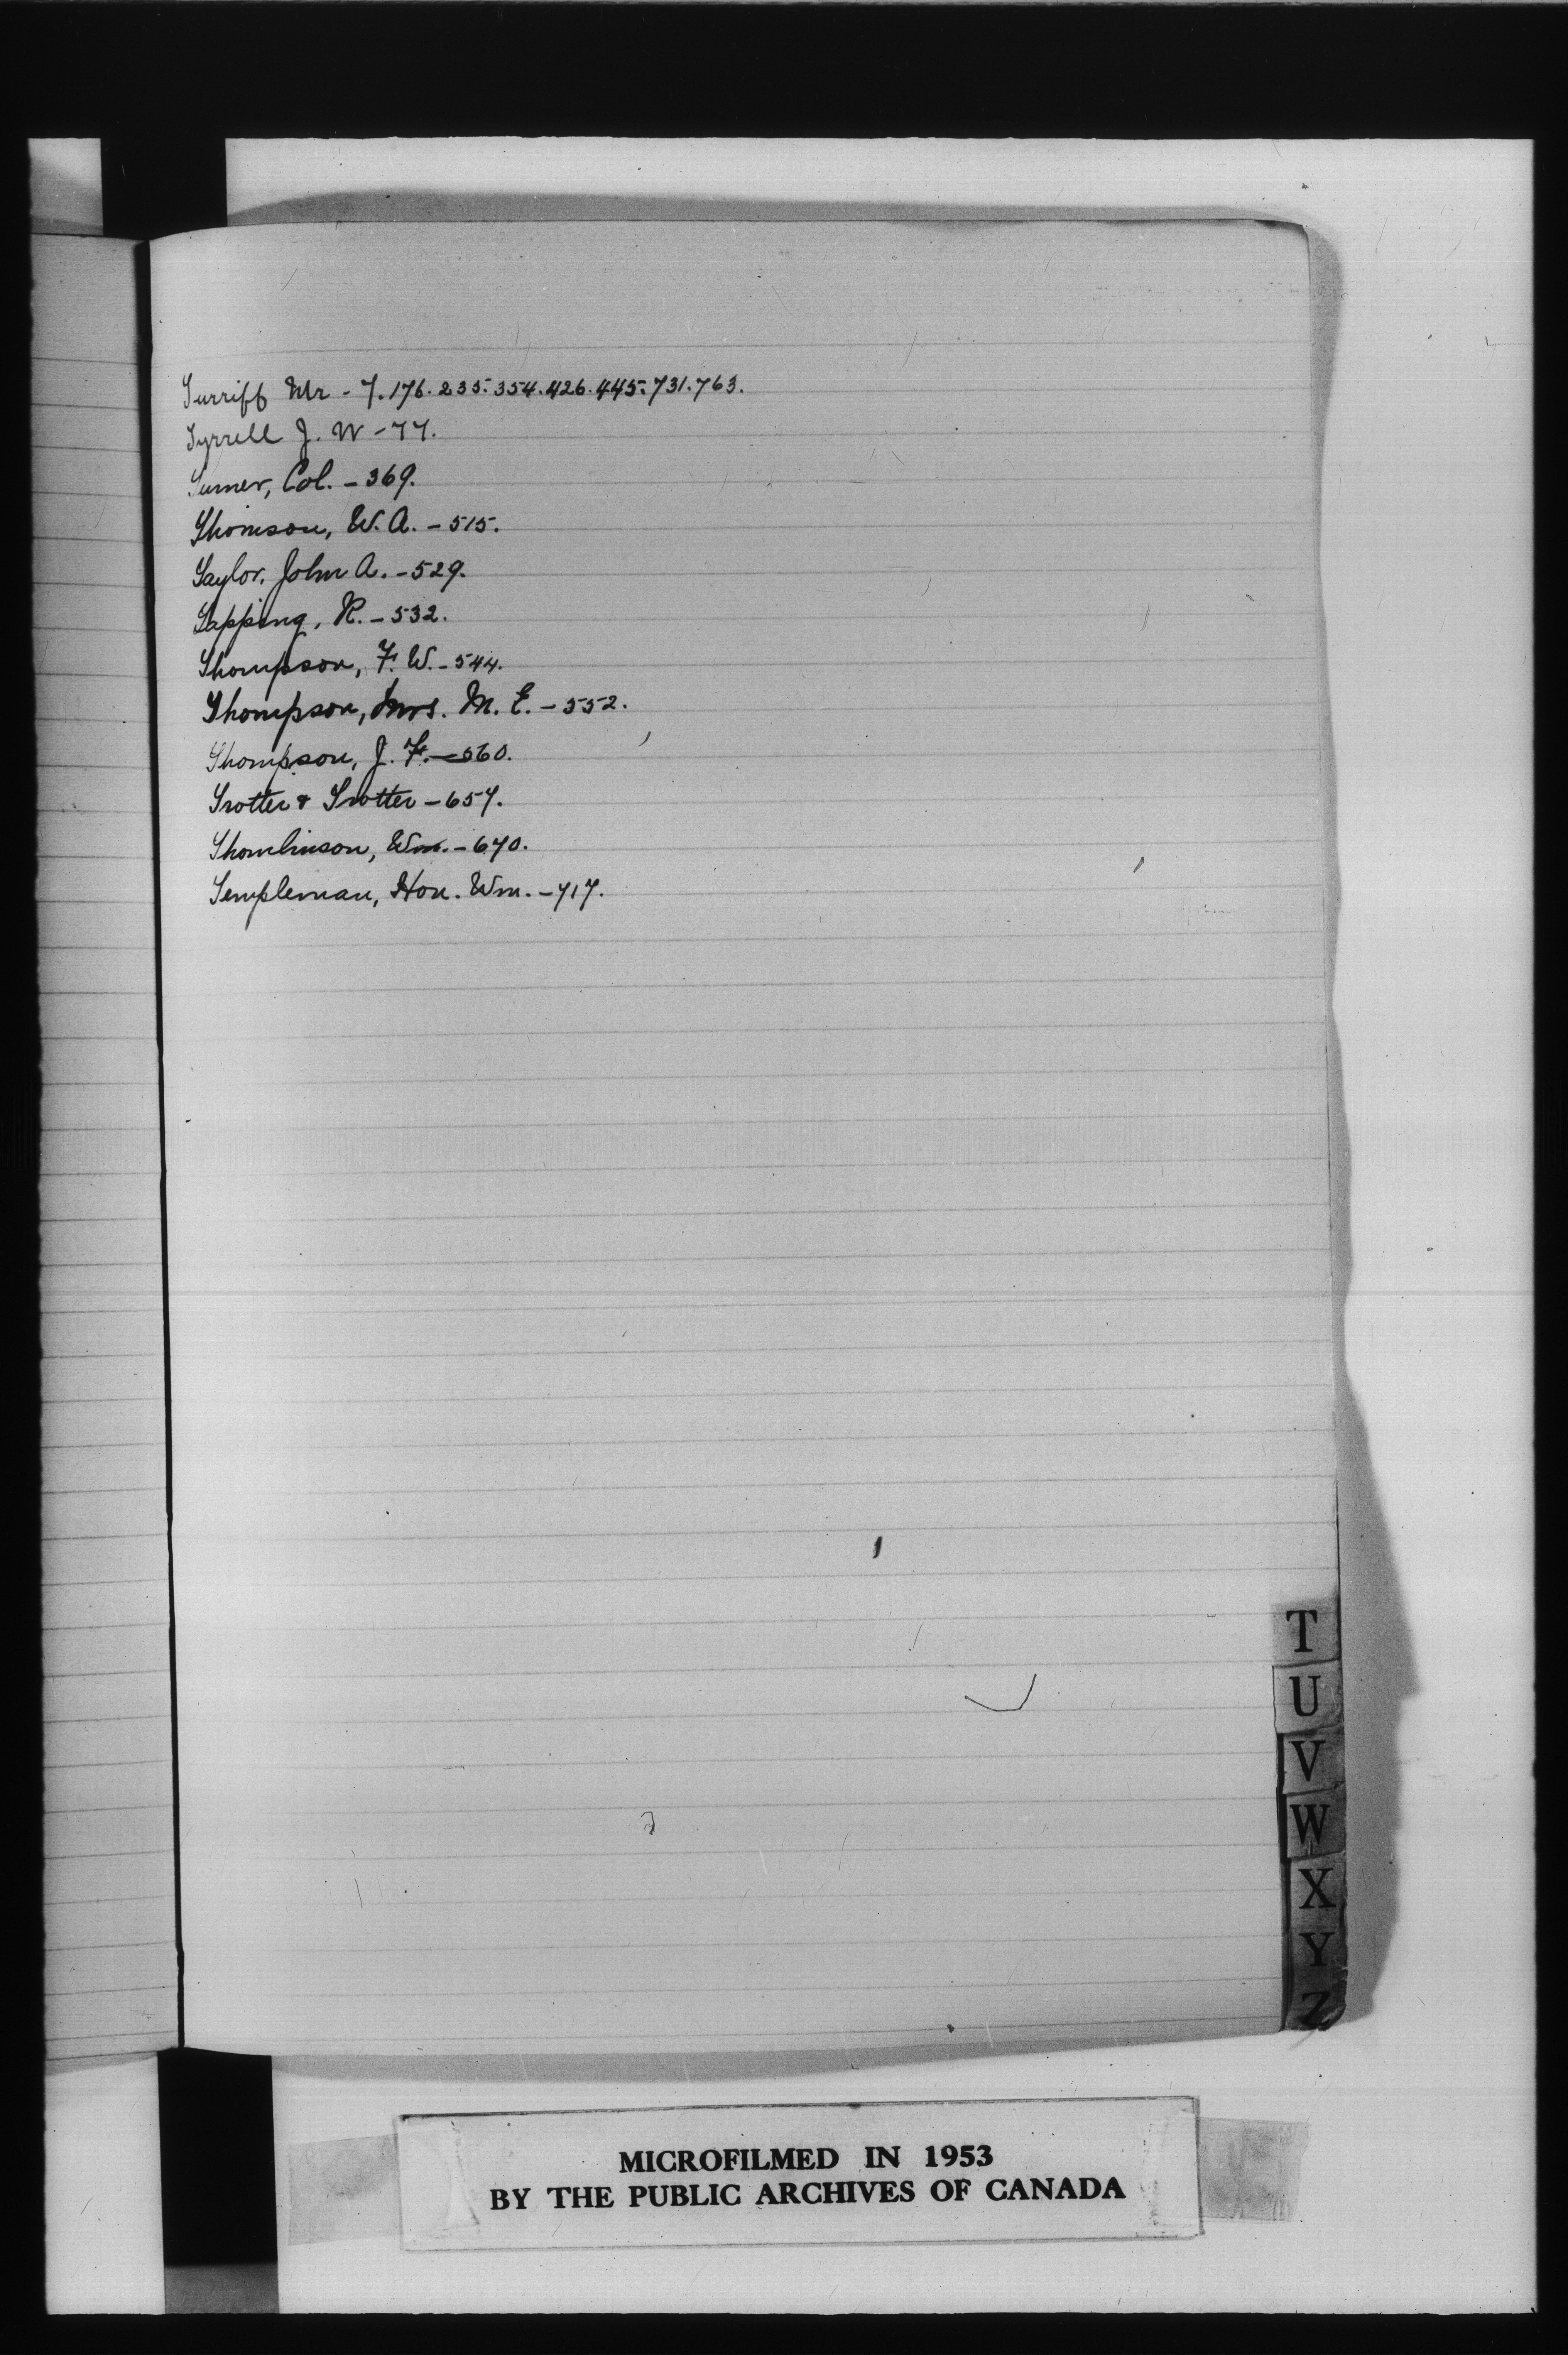 Turriff Mr - 7. 176. 235. 354. 426. 445. 731. 763.
Tyrrell J. W - 77.
Turner, Col. - 369.
Thomson, W. A. - 515.
Taylor, John A. - 529.
Tapping, R. - 532.
Thompson, F. W. - 544.
Thompson, Mrs. M. E. - 552.
Thompson, J. F. - 560.
Trotter & Trotter - 657.
Thomlinson, Wm. - 670.
Templeman, Hon. Wm. - 717.
T
U
V
W
X
Y
Z
MICROFILMED IN 1953
BY THE PUBLIC ARCHIVES OF CANADA